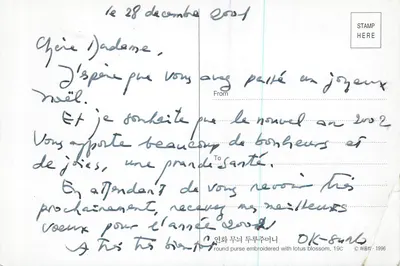 le 28 decembre 2001
STAMP
HERE
Chère Madame,
J'espère que vous avez passé un joyeux
Noël.
From
Et je souhaite que le nouvel an 2002
Vous apporte beaucoup de bonheurs et
de joies, une grande santé.
To
En attendant de vous revoir très
prochainement, recevez mes meilleurs
vœux pour l'année 2002
A très très bientôt
round purse embroidered with lotus blossom, 19C
1996